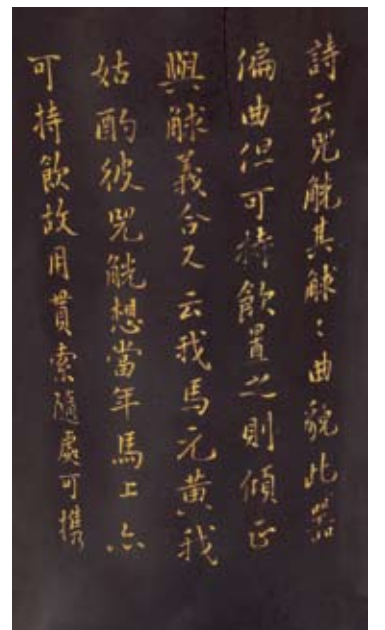 詩云兕觥其觩：曲貌此器
偏曲但可持飲置之則傾正
與觩義合又云我馬元黃我
姑酌彼兕觥想當年馬上亦
可持飲故用貫索隨處可攜